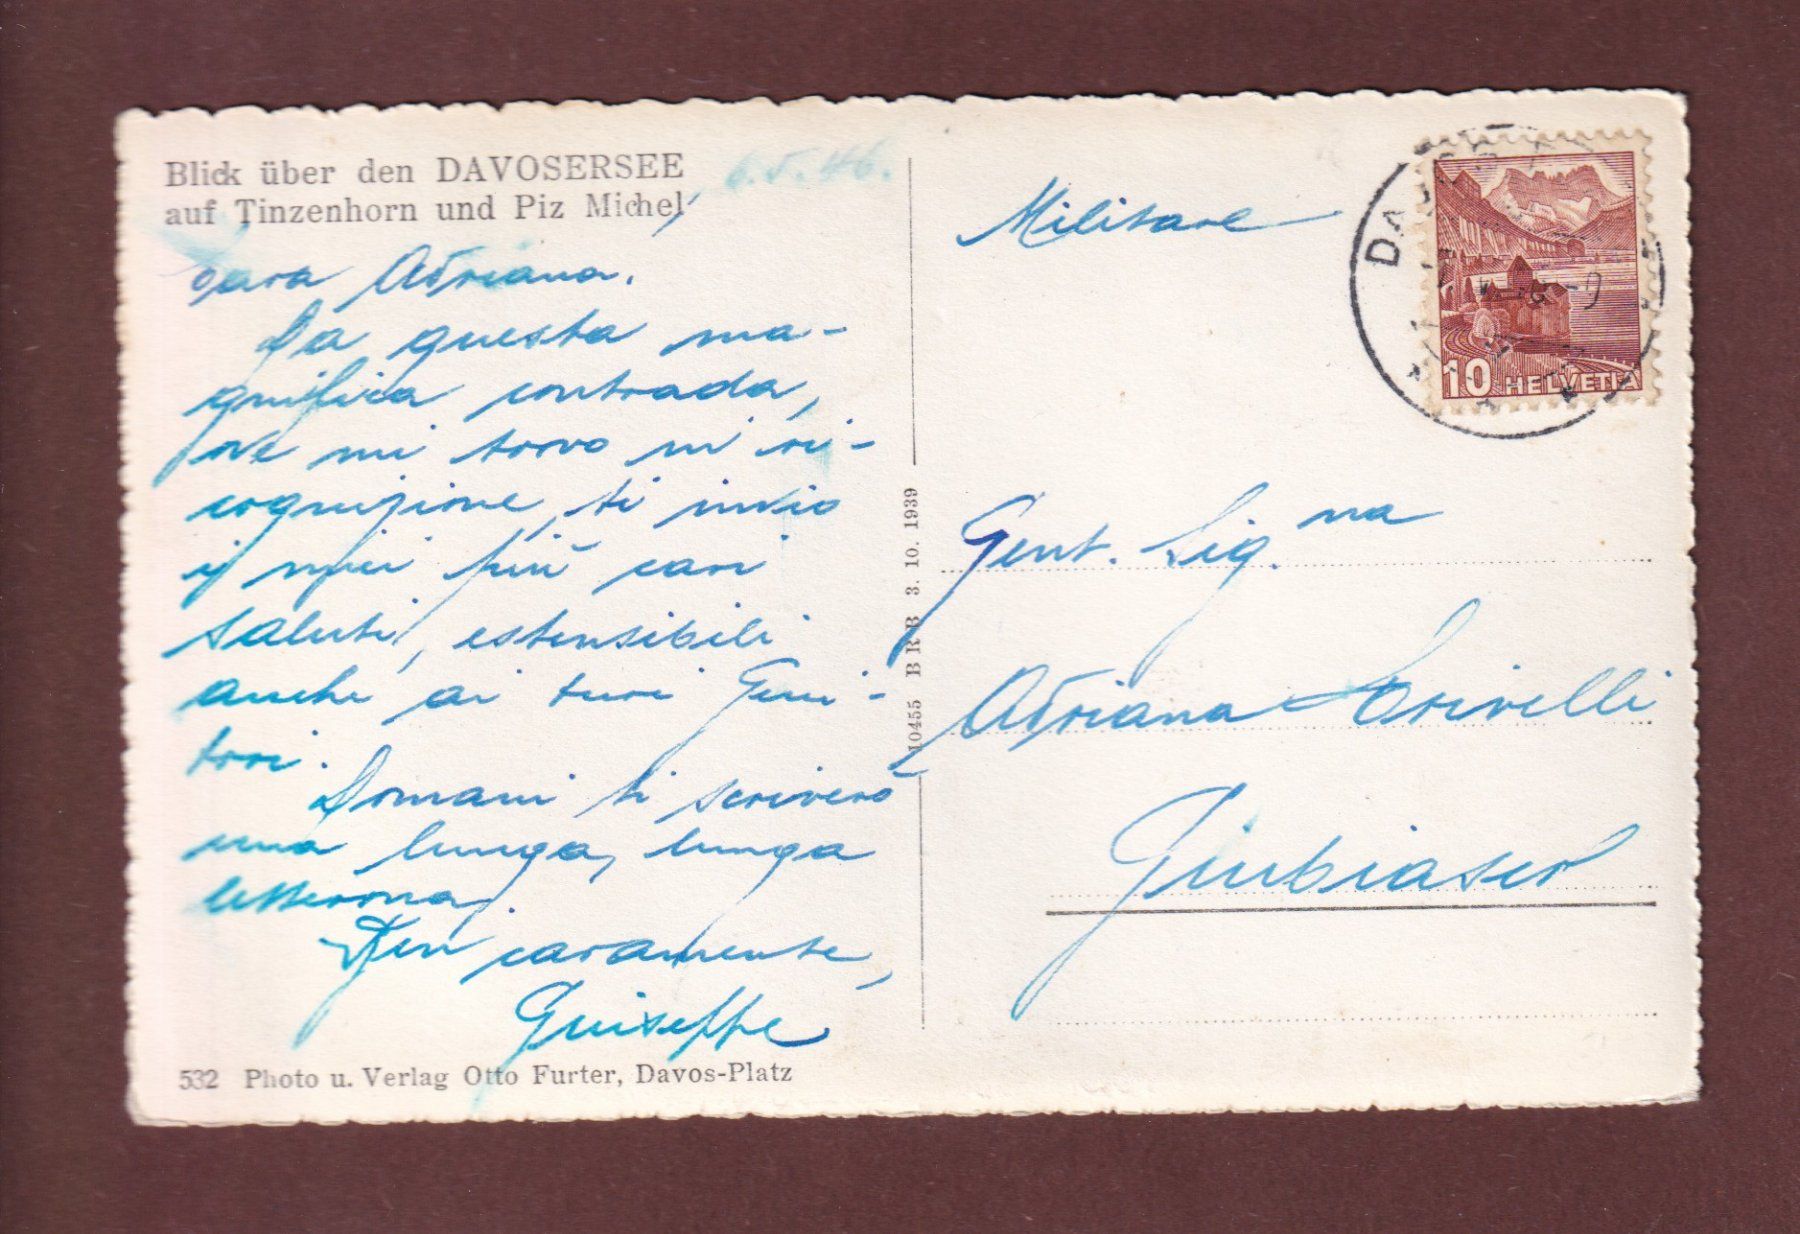 Blick über den DAVOSERSEE
auf Tinzenhorn und Piz Michel
6.5.46.
Cara Adriana.
Da questa ma-
gnifica contrada,
ove mi trovo in ri-
cognizione, ti invio
i miei più cari
saluti, estensibili
anche ai tuoi Geni-
tori.
Domani ti scriverò
una lunga, lunga
letterona.
caramente,
Giuseppe
532 Photo u. Verlag Otto Furter, Davos-Platz
10455 BRB 3. 10. 1939
Militare
10 HELVETIA
Gent. Sig.na
Adriana Crivelli
Giubiasco